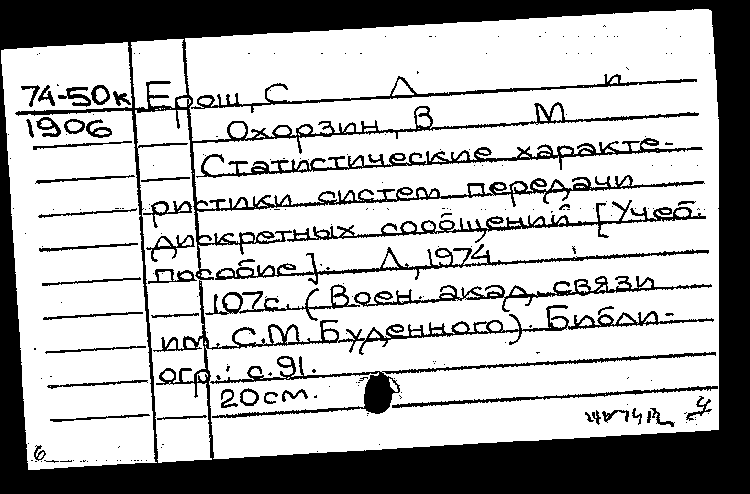 74-50к Ерош, С Л и
1906 Охорзин, В М
Статистические характе-
ристики систем передачи
дискретных сообщений. [Учеб.
пособие]. Л., 1974.
107с. (Воен. акад. связи
им. С.М. Буденного). Библи-
огр.: с. 91.
20см.
6